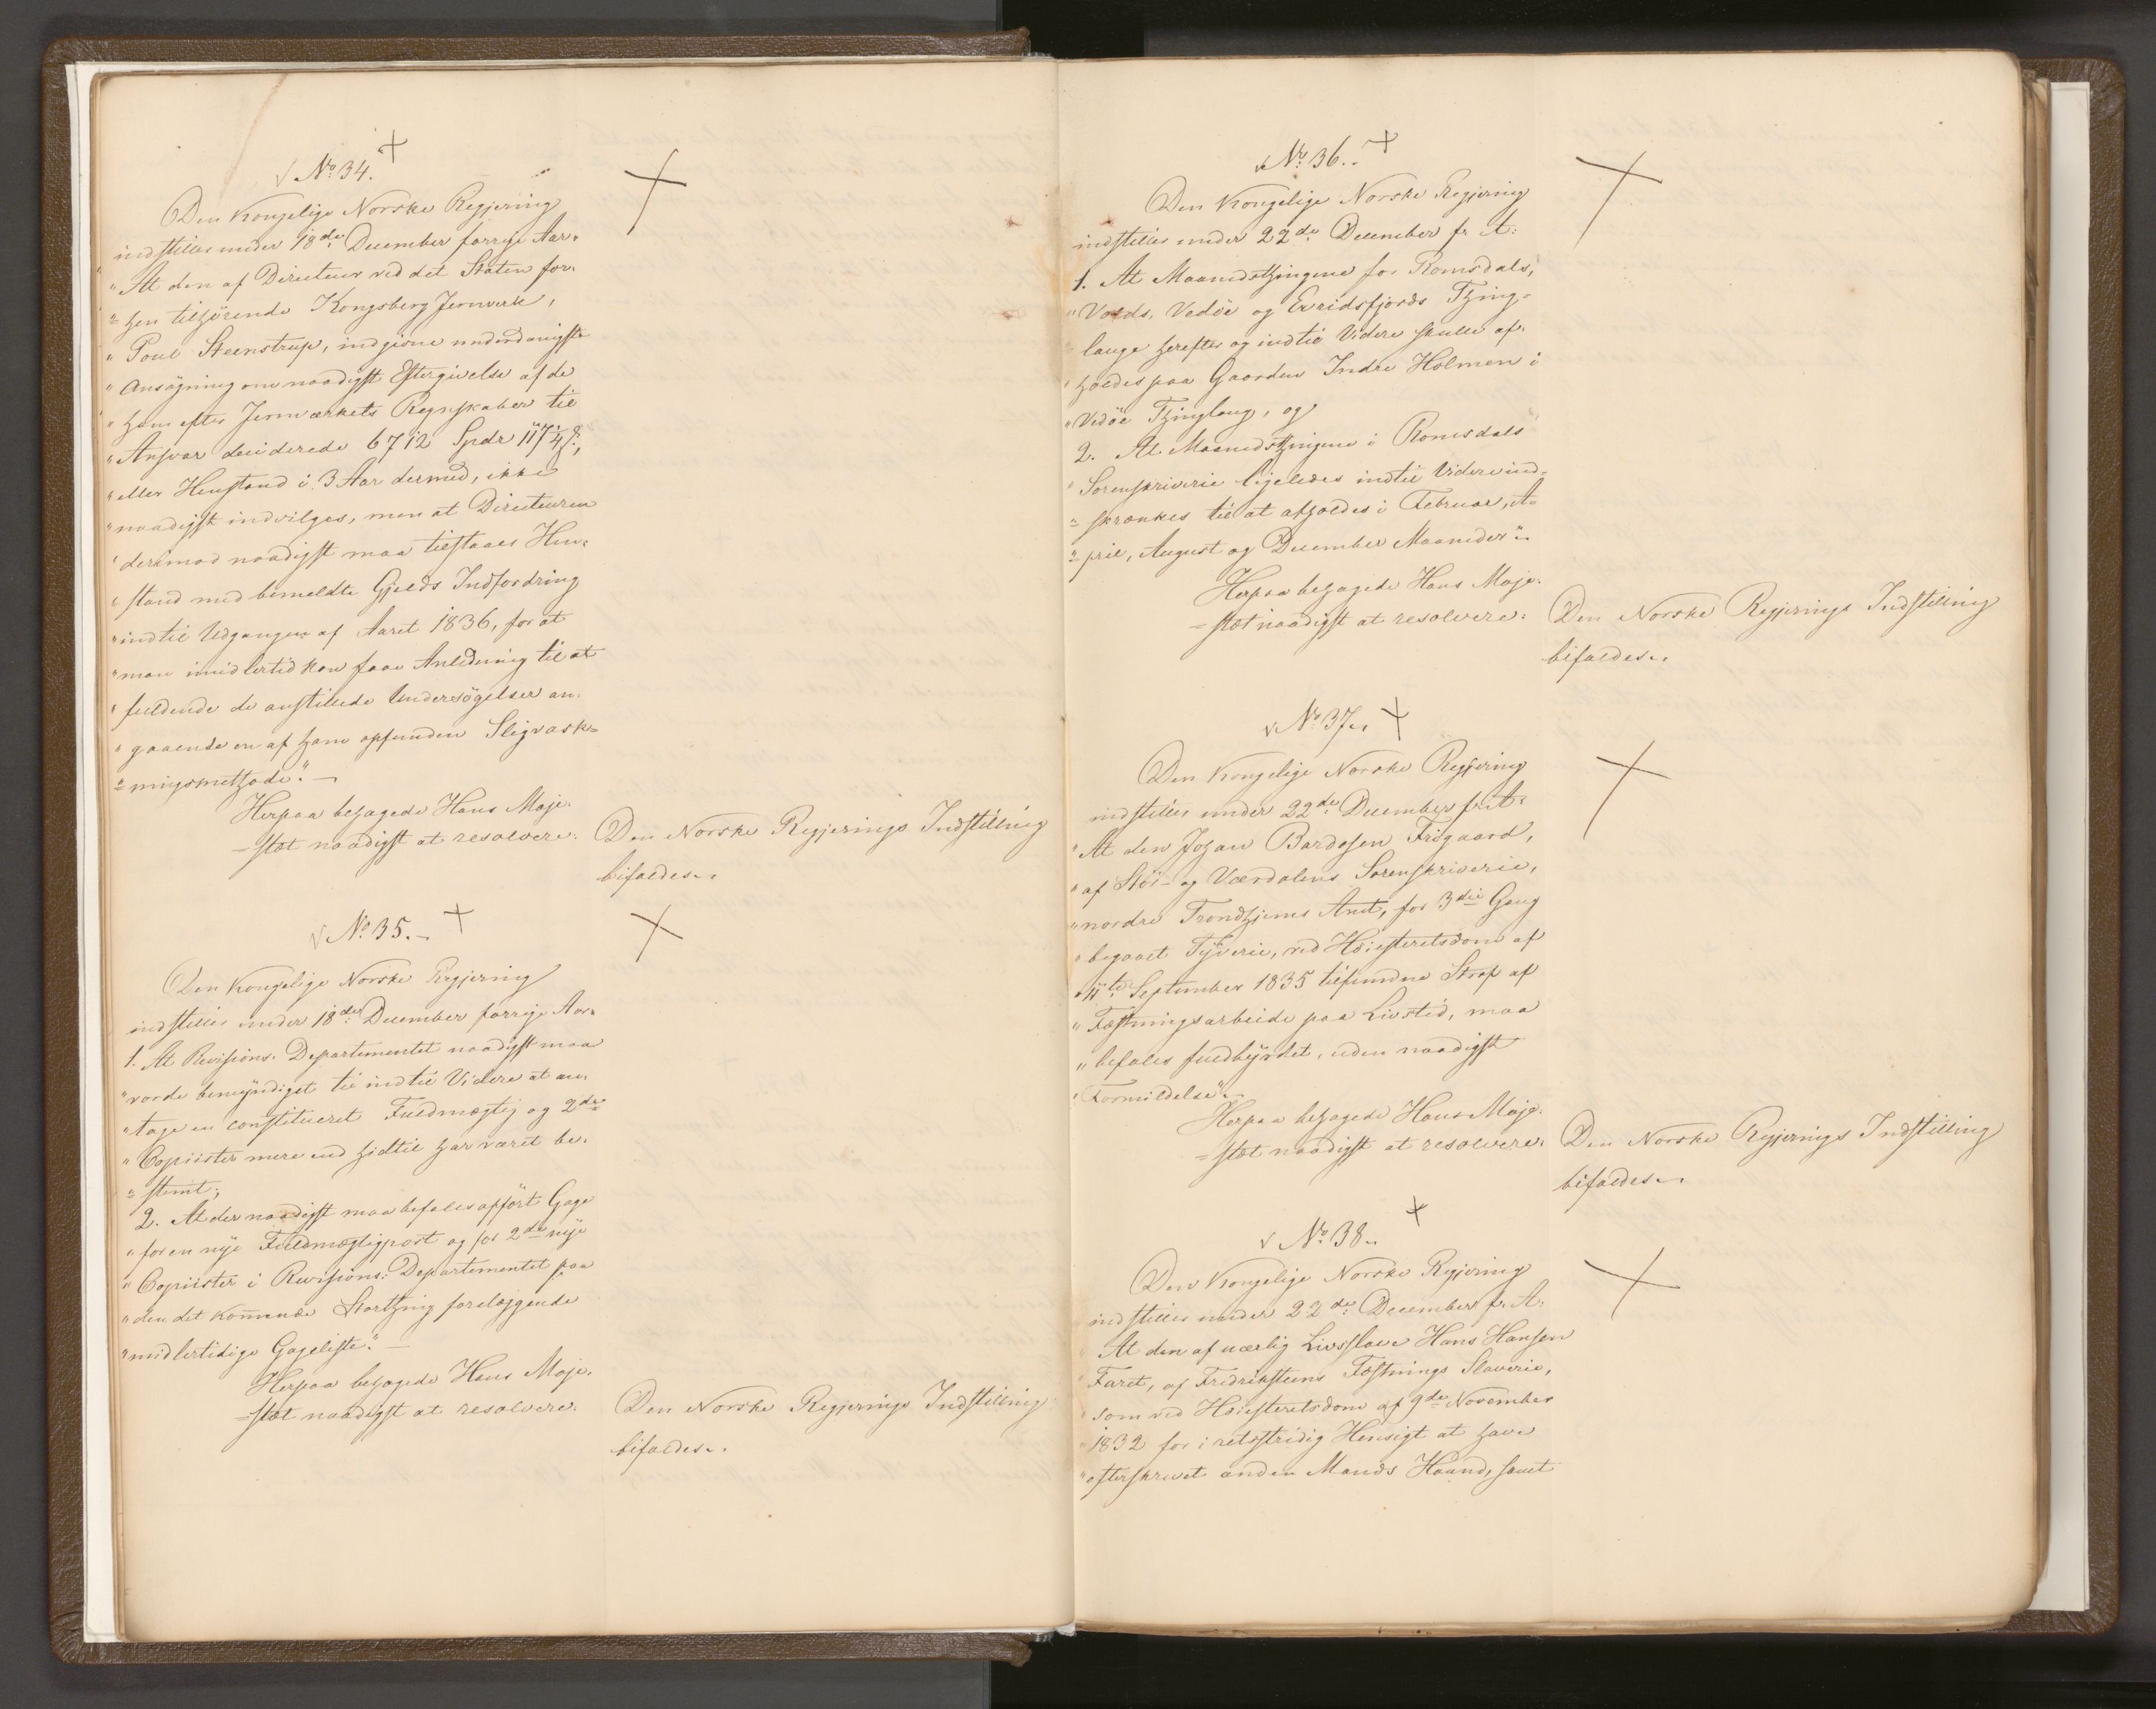 No 34.
Den Kongelige Norske Regjering
indstiller under 18de December forrige Aar.
"At den af Directeur ved det Staten for-
"hen tilhörende Kongsberg Jernverk,
"Poul Steenstrup, indgivne underdanigste
"Ansögning om naadigst Eftergivelse af de
"ham efter Jernværkets Regnskaber til
"Ansvar deciderede 6712 Spdr 117¼ ß,
"eller Henstand i 3 Aar dermed, ikke
"naadigst indvilges, men at Directeuren
"derimod naadigst maa tilstaaes Hen-
"stand med bemeldte Gjelds Indfordring
"indtil Udgangen af Aaret 1836, for at
"man imidlertid kan faae Anledning til at
"fuldende de anstillede Undersögelser an-
"gaaende en af ham opfunden Sligvask-
"ningsmethode."
Herpaa behagede Hans Maje-
stæt naadigst at resolvere:
Den Norske Regjerings Indstilling
bifaldes.
No 35.
Den Kongelige Norske Regjering
indstiller under 18de December forrige Aar.
1. At Revisions-Departementet naadigst maa
"vorde bemyndiget til indtil Videre at an-
"tage en constitueret Fuldmægtig og 2de
"Copiister mere end hidtil har været be-
"stemt;
2. At der naadigst maa befales opfört Gage
"for en nye Fuldmægtigpost og for 2de nye
"Copiister i Revisions-Departementet paa
"den det kommende Storthing forelæggende
"midlertidige Gageliste."
Herpaa behagede Hans Maje-
stæt naadigst at resolvere:
Den Norske Regjerings Indstilling
bifaldes.
No 36.
Den Kongelige Norske Regjering
indstiller under 22de December f. A:
1. At Maanedsthingene for Romsdals,
"Volds, Vedöe og Eeridsfjords Thing-
"lauge herefter og indtil Videre skulle af-
"holdes paa Gaarden Indre Holmen i
"Vedöe Thinglaug, og
2. At Maanedsthingene i Romsdals
"Sorenskriverie ligeledes indtil Videre ind-
"skrænkes til at afholdes i Februar, A-
"pril, August og December Maaneder."
Herpaa behagede Hans Maje-
stæt naadigst at resolvere:
Den Norske Regjerings Indstilling
bifaldes.
No 37.
Den Kongelige Norske Regjering
indstiller under 22de December f. A:
"At den Johan Bardosen Friigaard,
"af Stör- og Værdalens Sorenskriverie,
"nordre Trondhjems Amt, for 3die Gang
"begaaet Tyverie, ved Höiesteretsdom af
"11te September 1835 tilfundne Straf af
"Fæstningsarbeide paa Livstid, maa
"befales fuldbyrdet, uden naadigst
"Formildelse."
Herpaa behagede Hans Maje-
stæt naadigst at resolvere:
Den Norske Regjerings Indstilling
bifaldes.
No 38.
Den Kongelige Norske Regjering
indstiller under 22de December f. A:
"At den af uærlig Livsslave Hans Hansen
"Faret, af Fredrikstens Fæstnings Slaverie,
"som ved Höiesteretsdom af 9de November
"1832 for i retsstridig Hensigt at have
"efterskrevet anden Mands Haand, samt